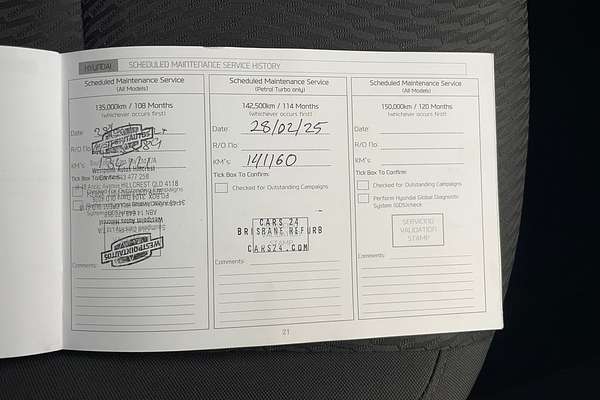 HYUNDAI SCHEDULED MAINTENANCE SERVICE HISTORY
Scheduled Maintenance Service
(All Models)
135,000km / 108 Months
(whichever occurs first)
Date:
R/O No.
KM's:
WESTPOINTAUTOS
Tick Box To Confirm:
HILLCREST QLD 4118
WESTPOINTAUTOS
Comments:
Scheduled Maintenance Service
(Petrol Turbo only)
142,500km / 114 Months
(whichever occurs first)
Date: 28/02/25
R/O No.
KM's: 141160
Tick Box To Confirm:
Checked for Outstanding Campaigns
CARS 24
BRISBANE REFURB
STAMP
CARS24.COM
Comments:
Scheduled Maintenance Service
(All Models)
150,000km / 120 Months
(whichever occurs first)
Date:
R/O No.
KM's:
Tick Box To Confirm:
Checked for Outstanding Campaigns
Perform Hyundai Global Diagnostic
System (GDS)check
SERVICING
VALIDATION
STAMP
Comments:
21